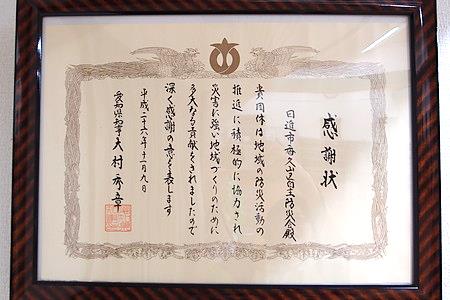 感謝状
日進市香久山自主防災会殿
貴団体は地域の防災活動の
推進に積極的に協力され
災害に強い地域づくりのために
多大なる貢献をされましたので
深く感謝の意を表します
平成二十六年十一月九日
愛知県知事大村秀章